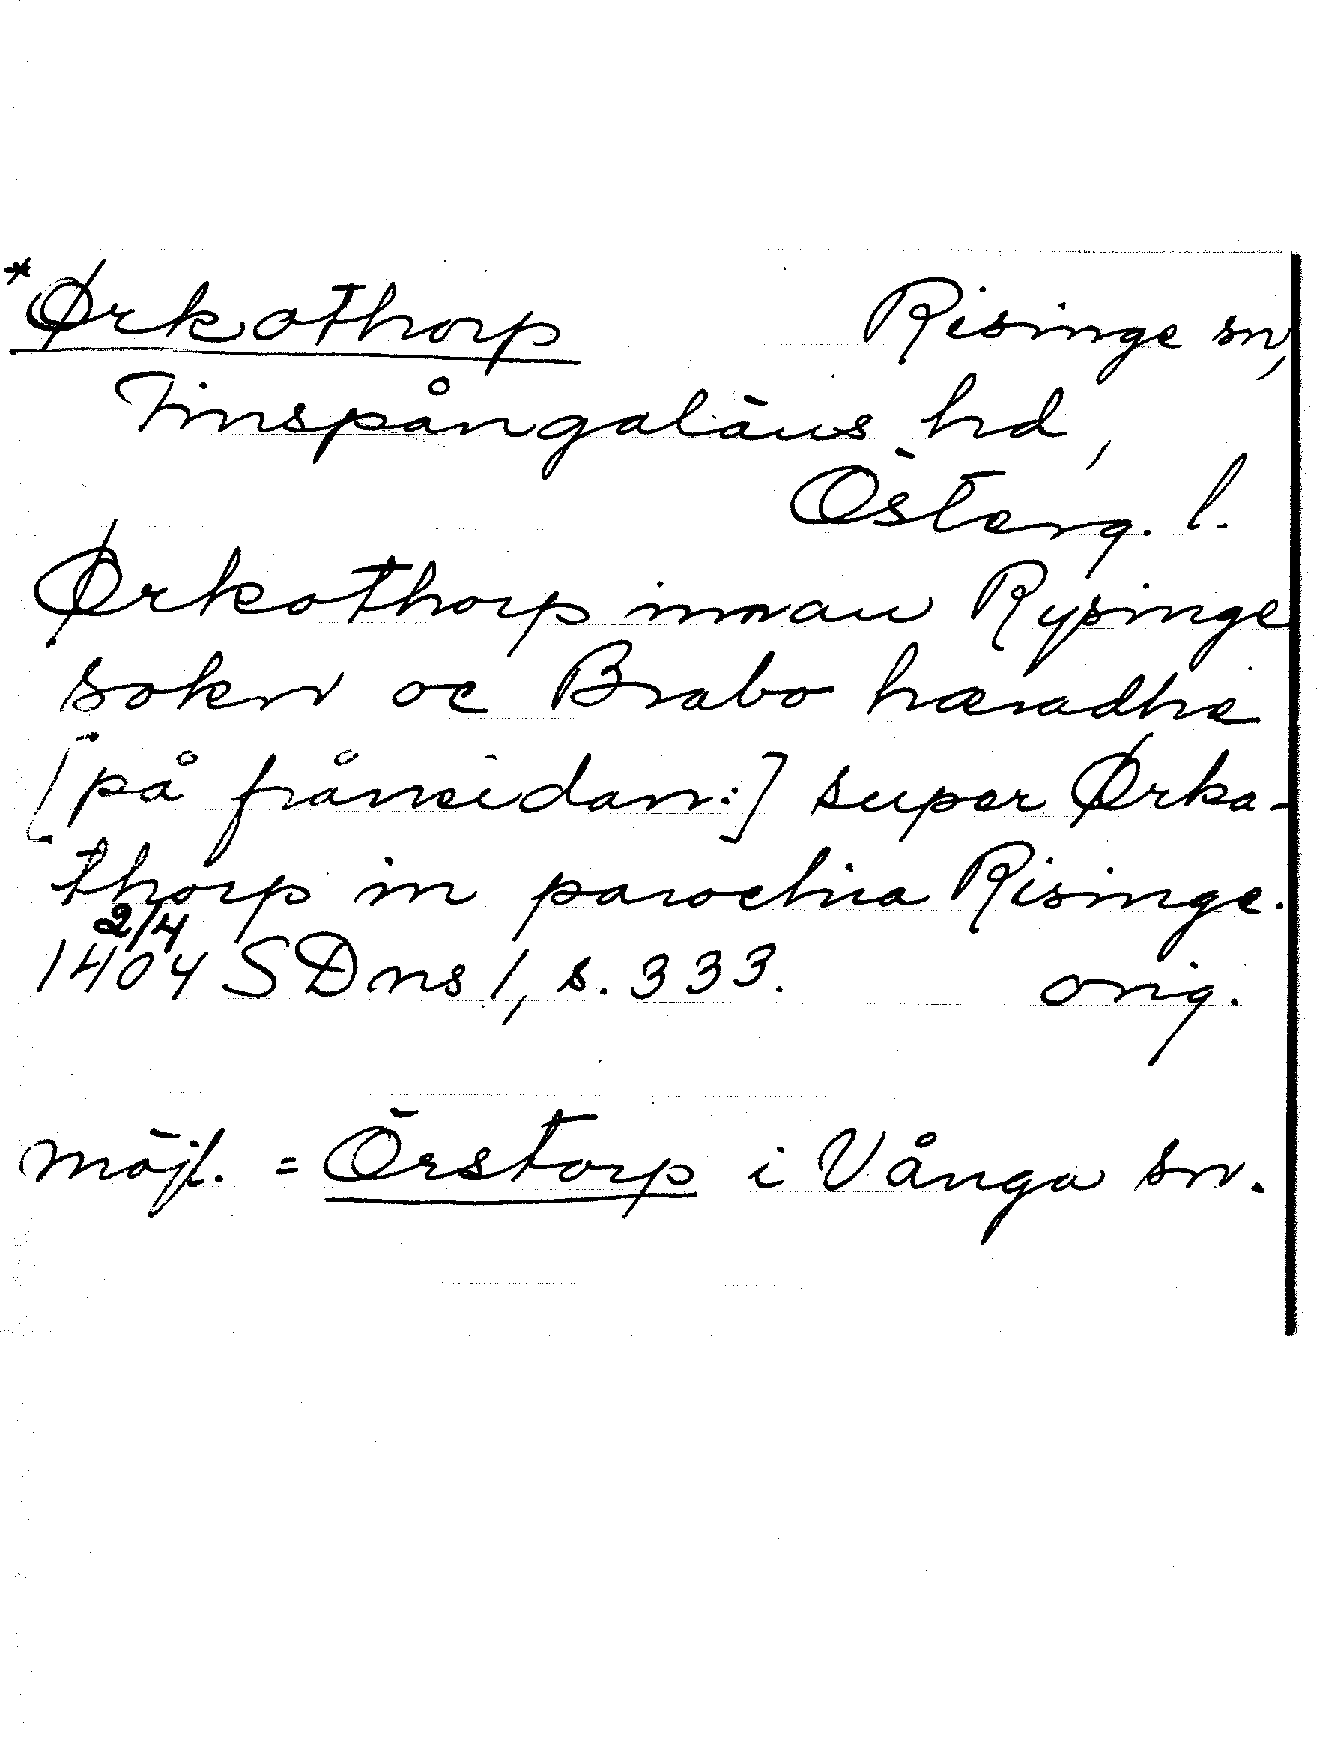 *Ørkothorp Risinge sn,
Finspångaläns hd,
Österg. l.
Ørkothorp innan Rysinge
sokn oc Brabo hæradhe
[på frånsidan:] super Ørka-
thorp in parochia Risinge.
2/4
1404 SDns 1, s. 333. orig.
möjl. = Örstorp i Vånga sn.